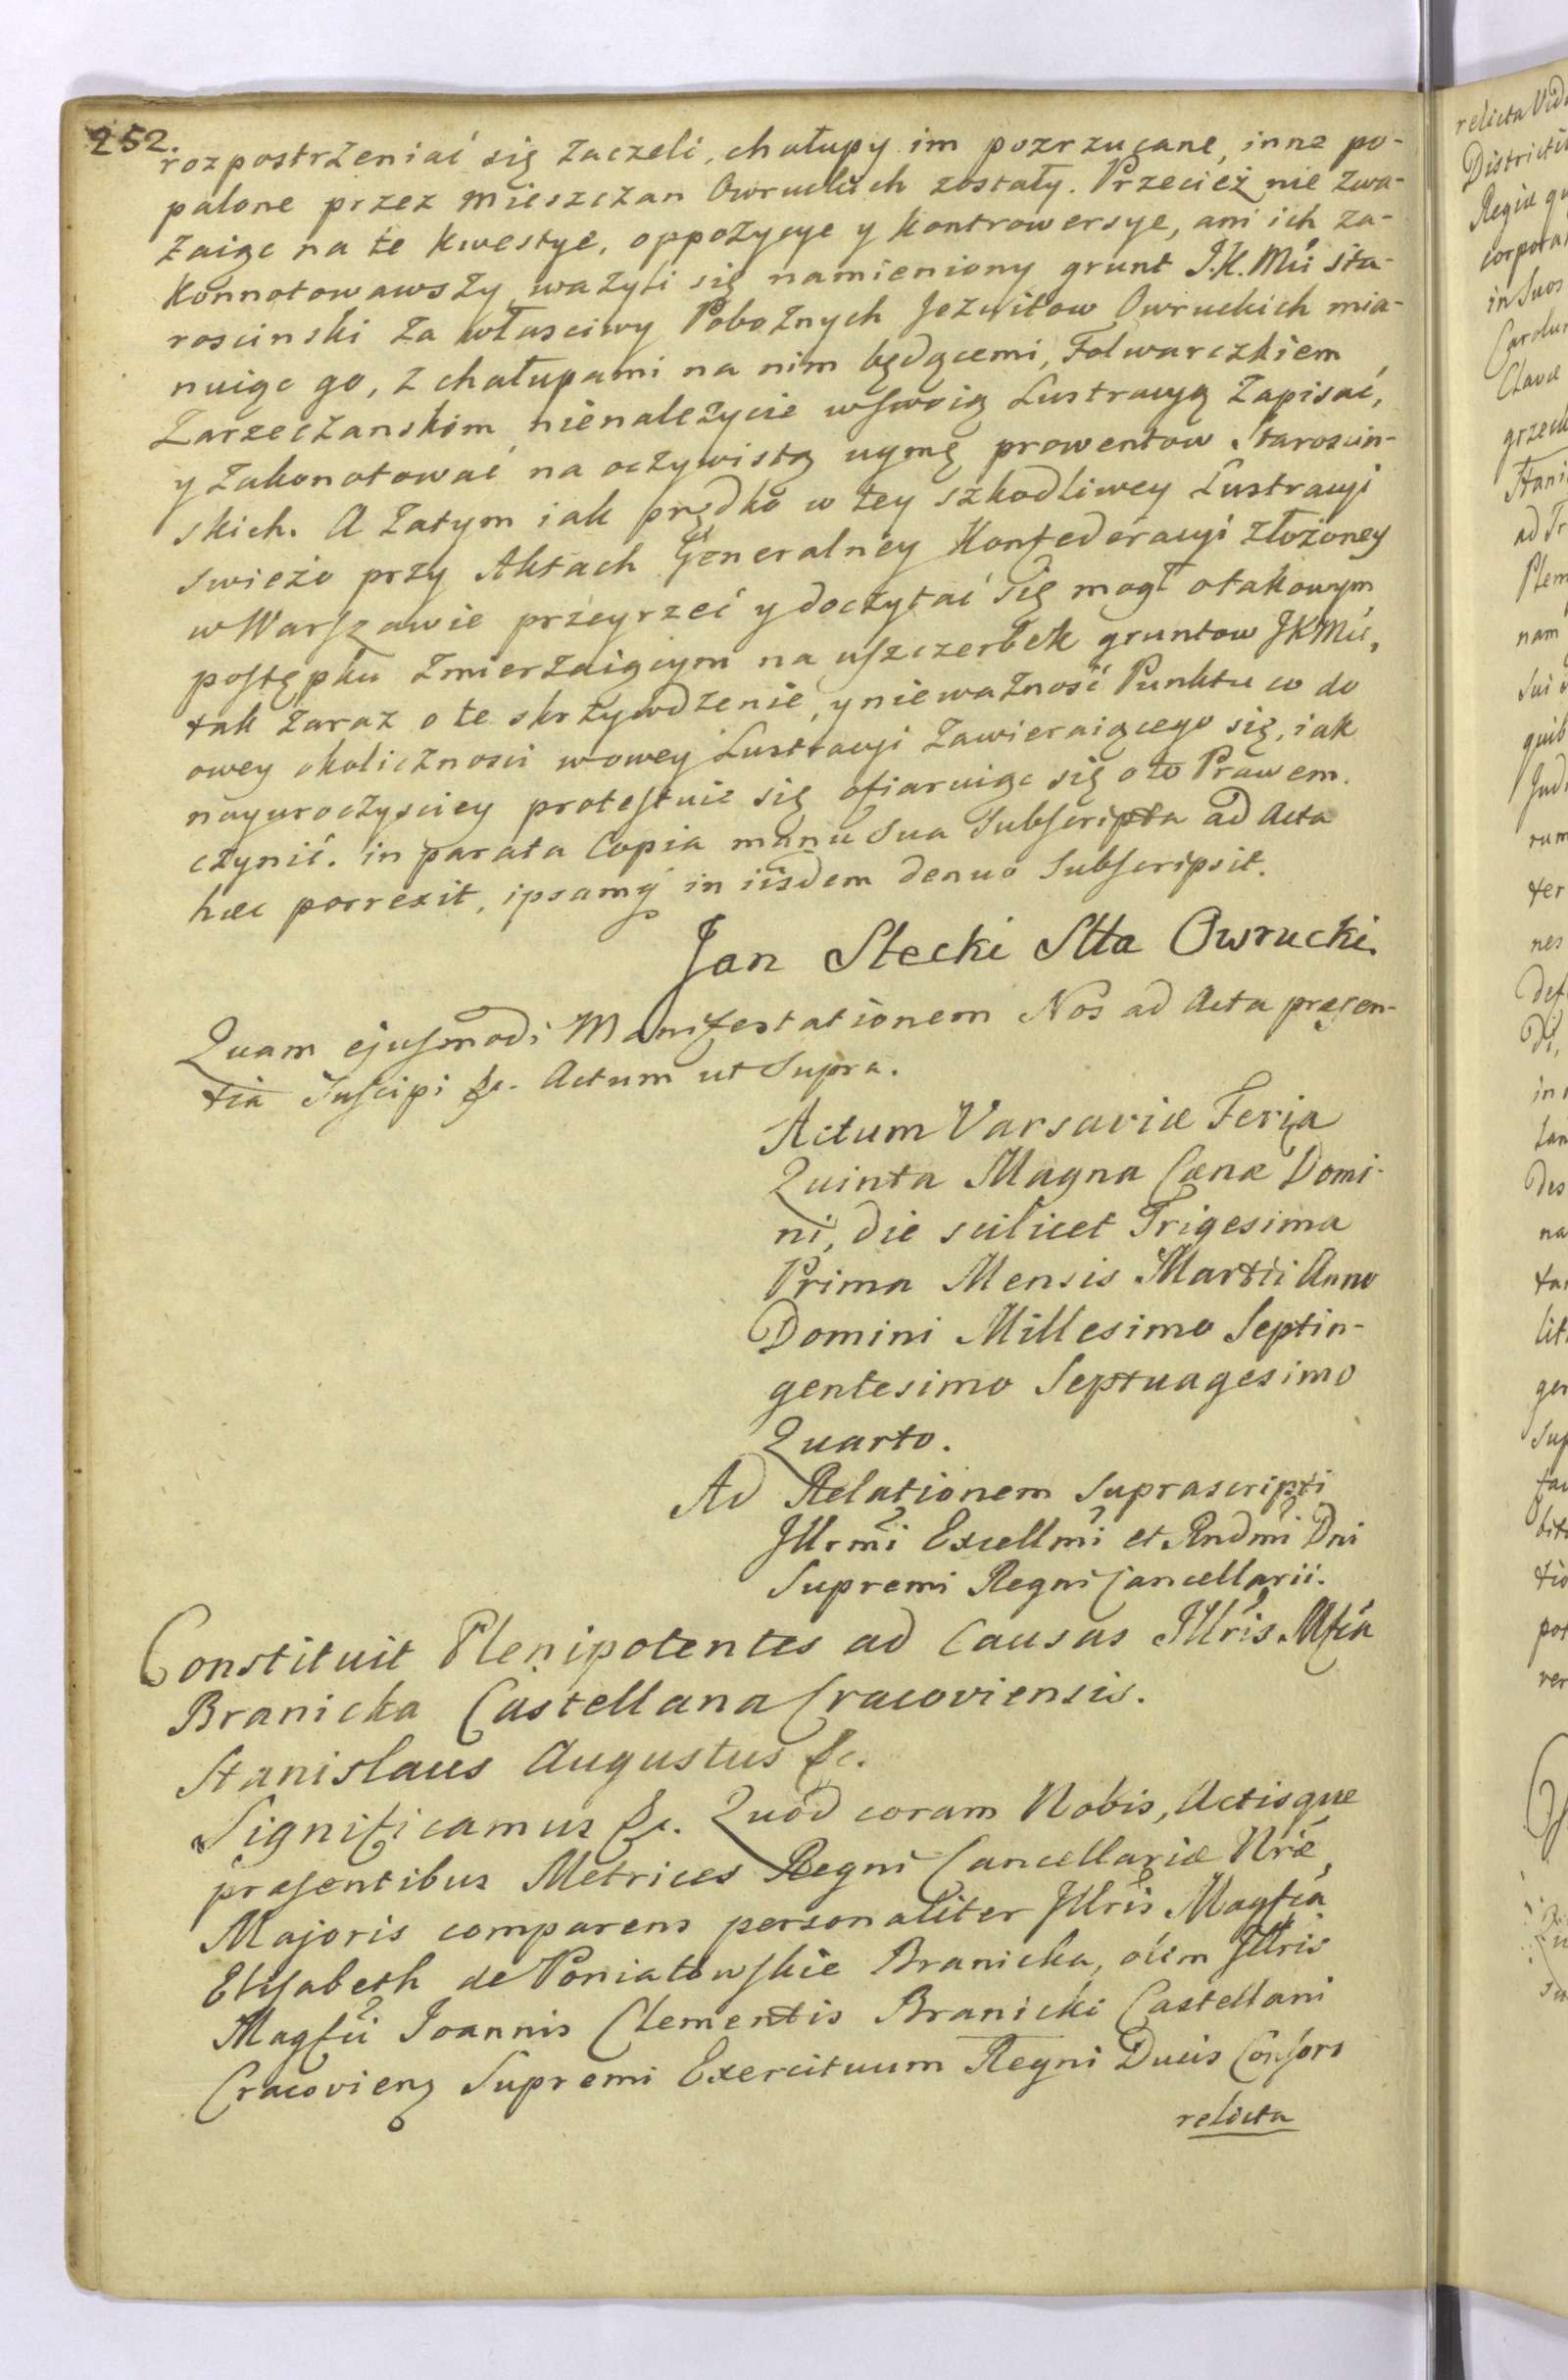 252.
rozpostrzeniać się zaczeli, chałupy im pozrzucane, inne po-
palone przez Mieszczan Owruckich zostały. Przecież nie zwa-
żaiąc na te kwestye, oppozycye y kontrowersye, ani ich za-
konnotowawszy, ważyli się namieniony grunt J.K.Mci sta-
rościnski za własciwy Pobożnych Jezuitow Owruckich mia-
nuiąc go, z chałupami na nim będącemi, Folwarczkiem
Zarzeczanskim nienależycie w swoią Lustracyą zapisać,
y zakonotować na oczywistą uymę prowentow Staroscin-
skich. A zatym iak prędko w tey szkodliwey Lustracyi
swieżo przy Aktach Generalney Konfederacyi złożoney
w Warszawie przeyrzeć y doczytać się mogł o takowym
postępku zmierzaiącym na uszczerbek gruntow JKMci,
tak zaraz o te skrzywdzenie, y nieważność Punktu co do
owey okoliczności w owey Lustracyi zawieraiącego się, iak
nayuroczyściey protestuie się ofiaruiąc się o to Prawem
czynić. in parata Copia manu sua Subscripta ad Acta
hæc porrexit, ipsamq́ in iisdem denuo Subscripsit.
Jan Stecki Stta Owrucki.
Quam ejusmodi Manifestationem Nos ad Acta præsen-
tia Suscipi &c. Actum ut Supra.
Actum Varsaviæ Feria
Quinta Magna Cænæ Domi-
ni, die scilicet Trigesima
Prima Mensis Martii Anno
Domini Millesimo Septin-
gentesimo Septuagesimo
Quarto.
Ad Relationem suprascripti
Jllrmi Excellmi et Rndmi Dni
Supremi Regni Cancellarii.
Constituit Plenipotentes ad Causas Jllris Mfca
Branicka Castellana Cracoviensis.
Stanislaus Augustus &c.
Significamus &c. Quod coram Nobis, Actisque
præsentibus Metrices Regni Cancellariæ Nræ
Majoris comparens personaliter Jllris Magfca
Elisabeth de Poniatowskie Branicka, olim Jllris
Magfci Joannis Clementis Branicki Castellani
Cracovienz Supremi Exercituum Regni Ducis Consors
relicta